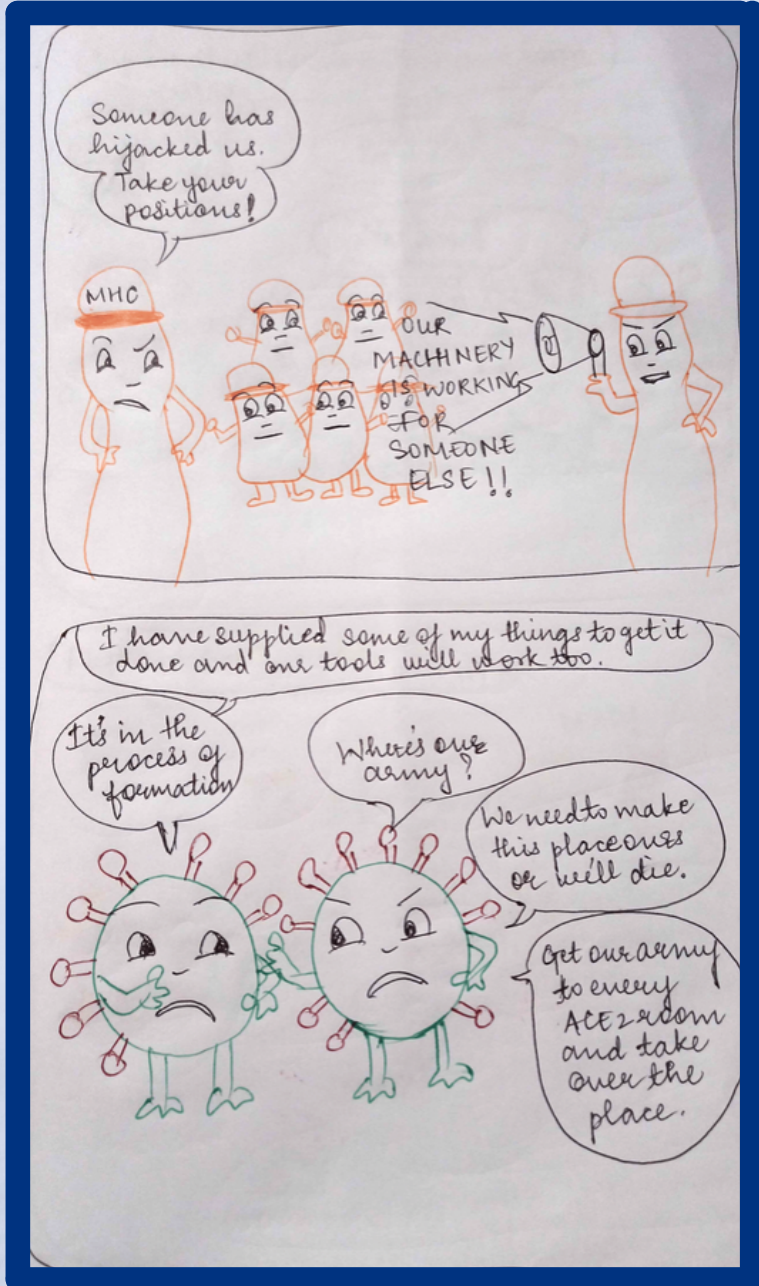 Someone has
hijacked us.
Take your
positions!
MHC
OUR
MACHINERY
IS WORKING
FOR
SOMEONE
ELSE!!
I have supplied some of my things to get it
done and our tools will work too.
It's in the
process of
formation
Where's our
army?
We need to make
this place ours
or we'll die.
Get our army
to every
ACE2 room
and take
over the
place.